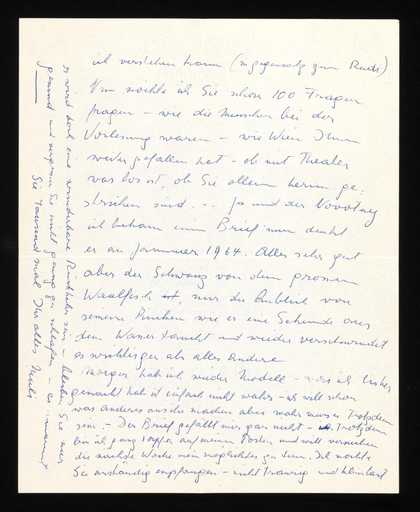 ich verstehen kann (im gegensatz zum Radio)
Nun möchte ich Sie schon 100 Fragen
fragen – wie die Menschen bei der
Vorlesung waren – wie Wien Ihnen
weiter gefallen hat – ob mit Theater
was los ist, ob Sie allein herum ge-
strichen sind ... Ja und der Novotny
ich bekam einen Brief nun denkt
er an Jannuar 1964. Alles sehr gut
aber der Schwanz von dem grossen
Waalfisch ist, nur der Anblick von
seinem Rücken wie er eine Sekunde aus
dem Wasser taucht und wieder verschwindet
es wichtiger als alles Andere
hab ich wieder Modell – was ich bisher
gemacht hab ist einfach nicht wahr – es will schon
was anderes aus der machen aber wahr muss trotzdem
sein. – Der Brief gefällt mir gar nicht – Trotzdem
bin ich ganz tapfer auf meinem Posten und will versuchen
die nächste Woche mein möglichstes zu tun. Ich möchte
Sie anständig empfangen – nicht traurig und kleinlaut
es wird doch eine wunderbare Rückkehr sein – bleiben Sie nur
gesund und vergessen Sie nicht genug zu schlafen – es umarmt
Sie tausend mal Ihr altes